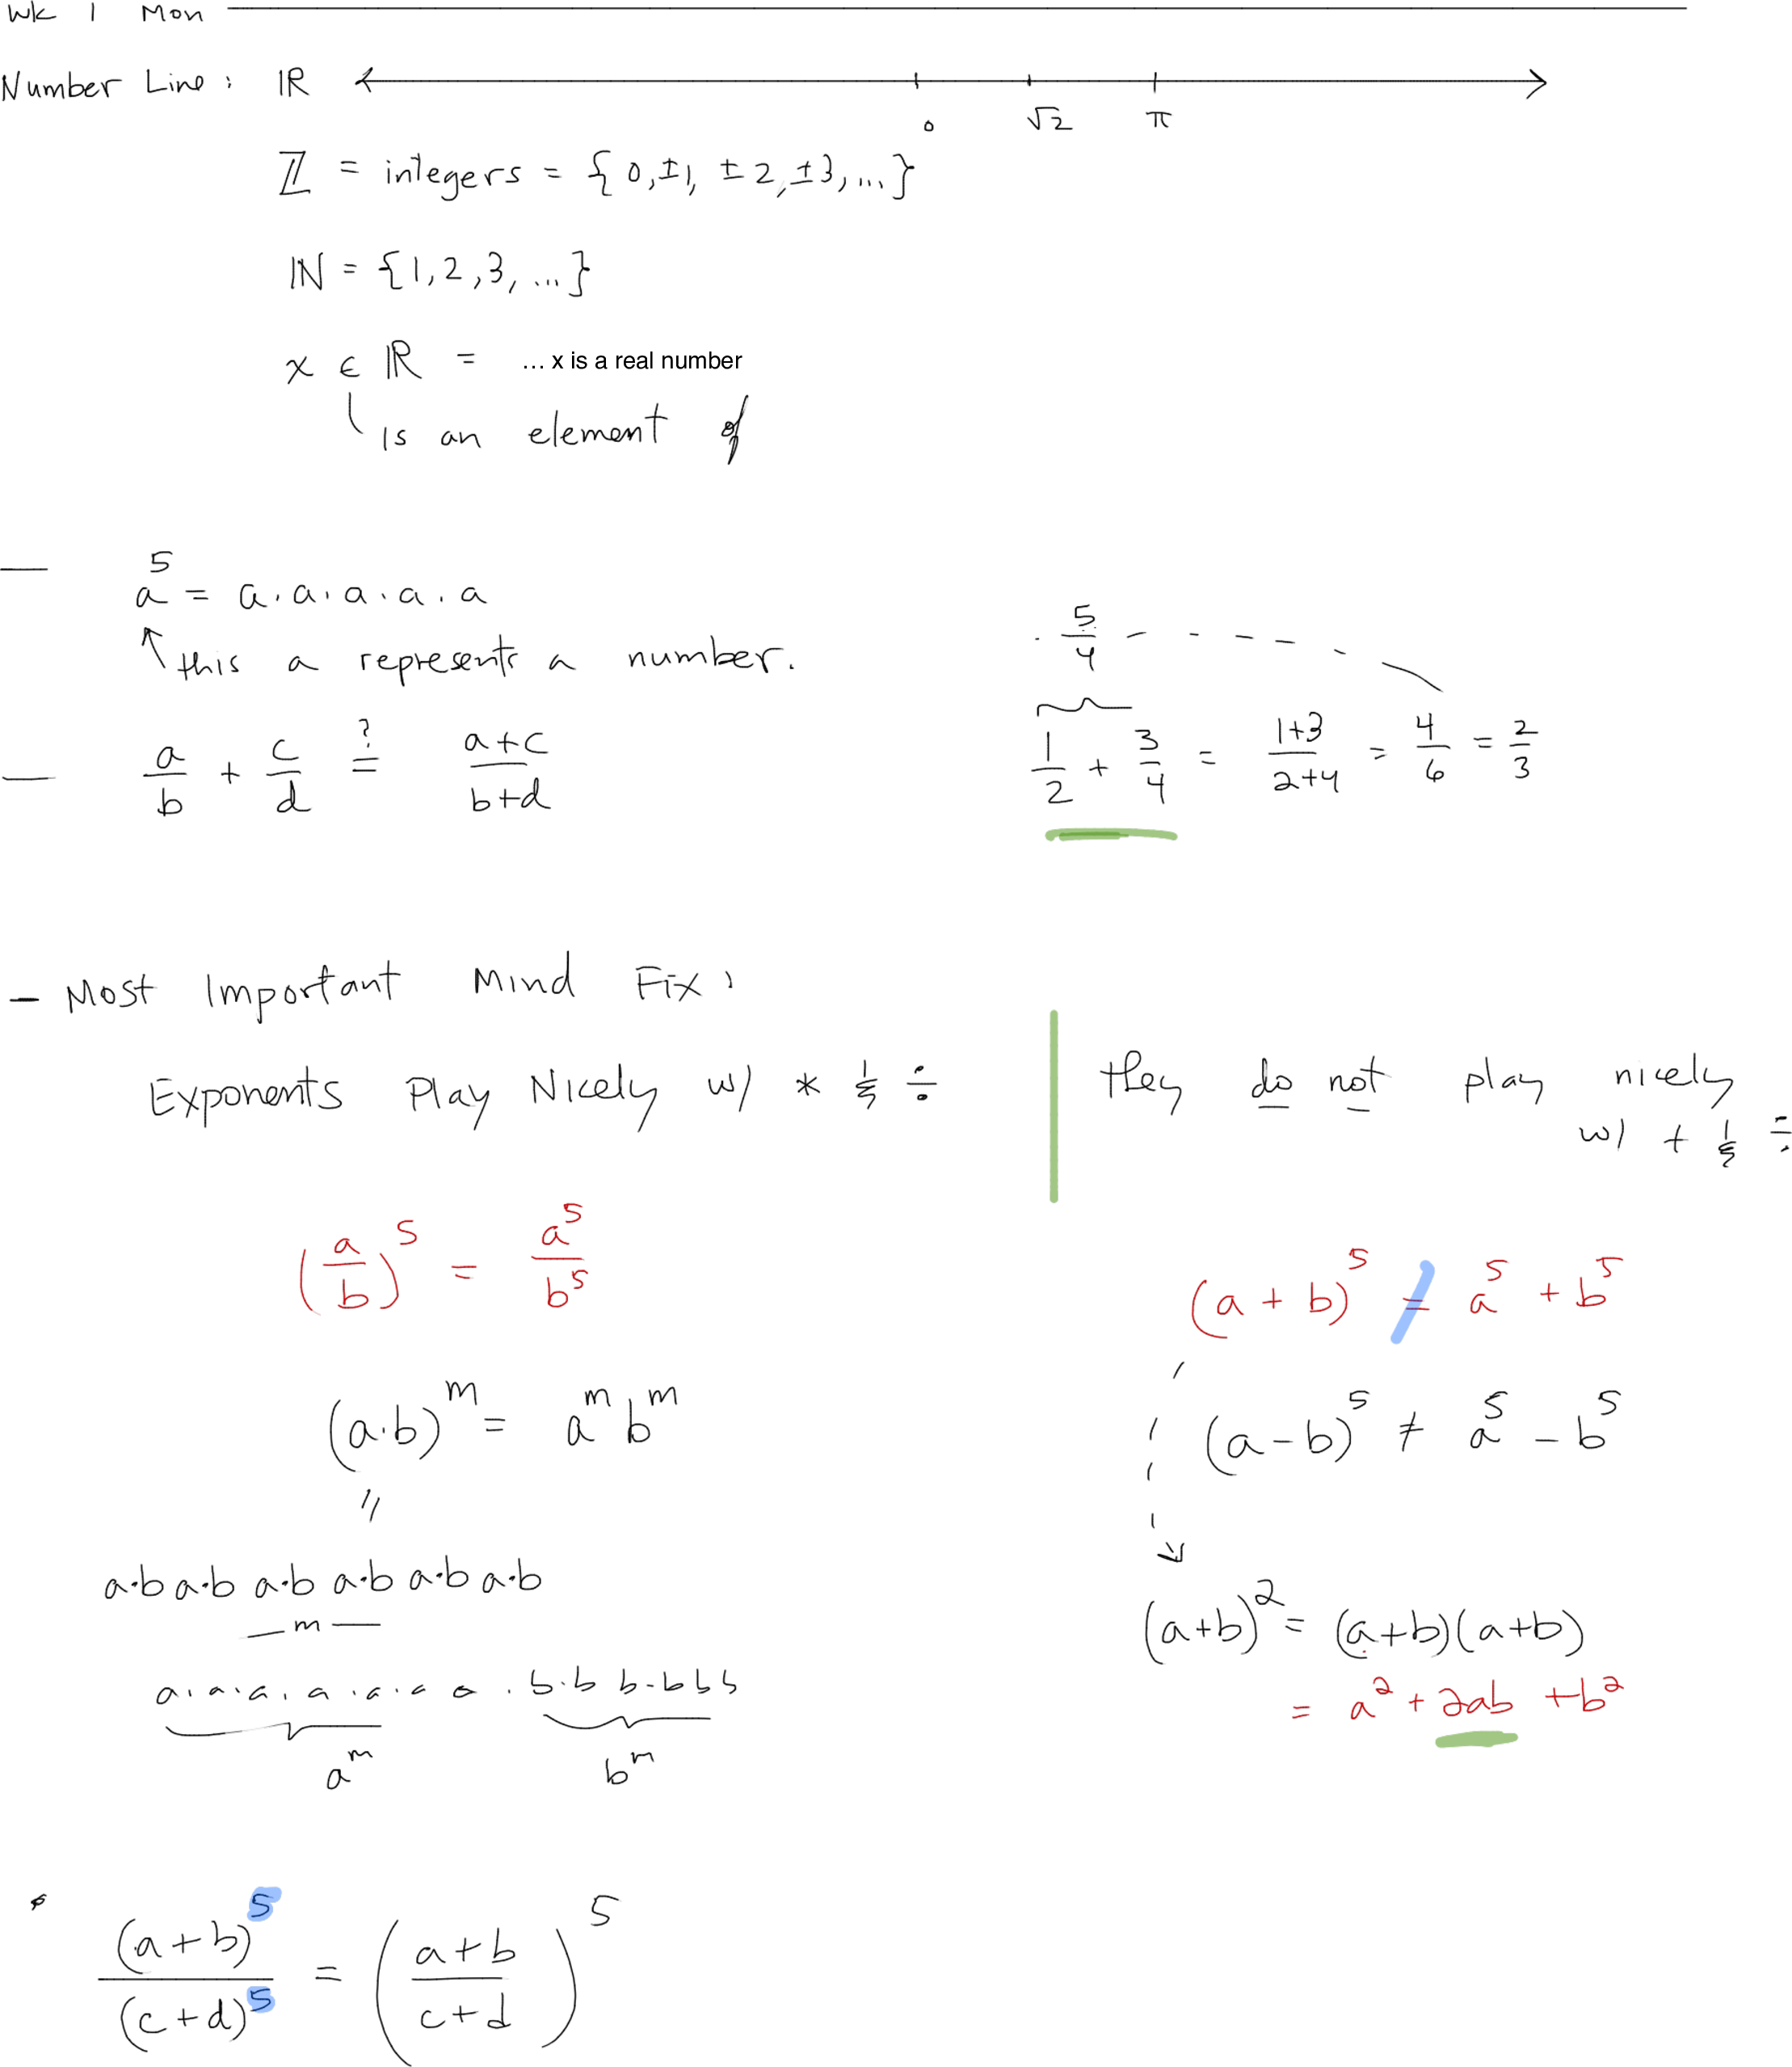 Wk 1 Mon
Number Line: ℝ
0 √2 π
ℤ = integers = {0, ±1, ±2, ±3, ...}
ℕ = {1, 2, 3, ...}
x ∈ ℝ = ... x is a real number
is an element of
— a^5 = a·a·a·a·a
this a represents a number.
— a/b + c/d ≟ (a+c)/(b+d)
5/4
1/2 + 3/4 = (1+3)/(2+4) = 4/6 = 2/3
- Most Important Mind Fix:
Exponents Play Nicely w/ * & ÷
they do not play nicely
w/ + & ÷
(a/b)^5 = a^5/b^5
(a·b)^m = a^m b^m
=
a·b a·b a·b a·b a·b a·b
— m —
a·a·a·a·a·a·a·b·b b·b b b
a^m b^m
(a + b)^5 ≠ a^5 + b^5
(a-b)^5 ≠ a^5 - b^5
(a+b)^2 = (a+b)(a+b)
= a^2 + 2ab + b^2
(a+b)^5/(c+d)^5 = ((a+b)/(c+d))^5